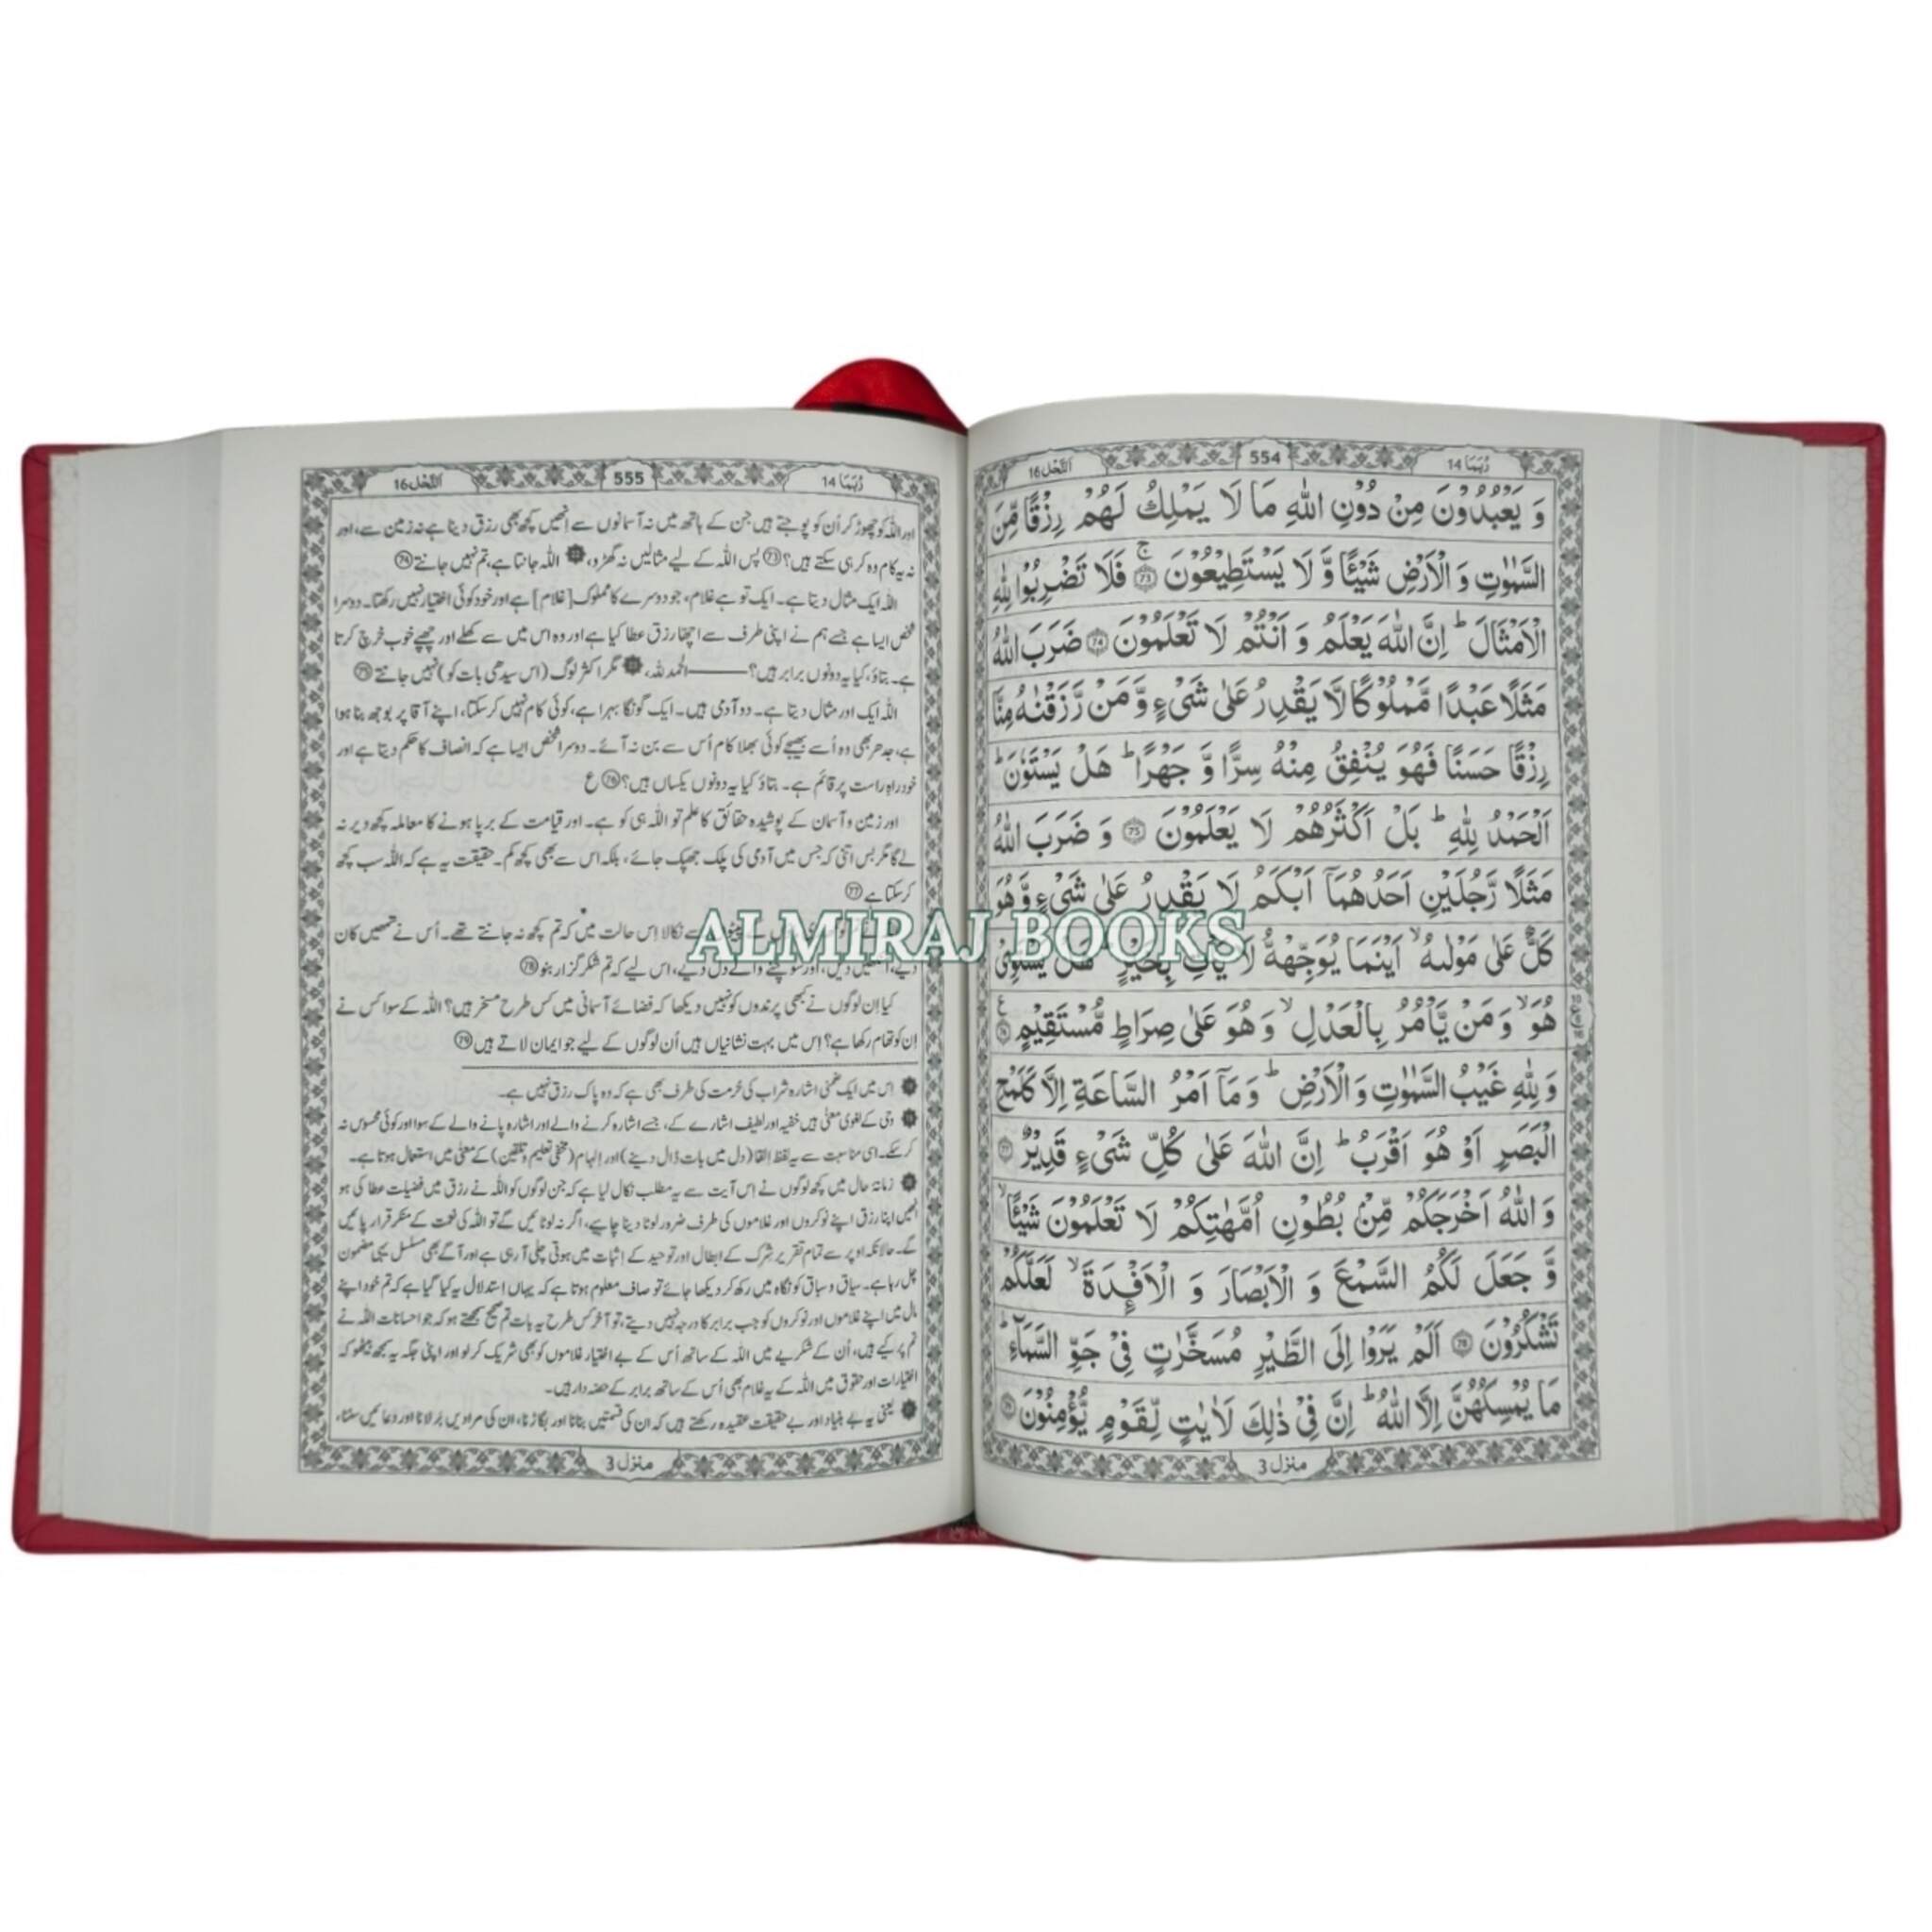 رُبَمَا 14
554
اَلنَّحْل 16
وَ يَعْبُدُوْنَ مِنْ دُوْنِ اللّٰهِ مَا لَا يَمْلِكُ لَهُمْ رِزْقًا مِّنَ
السَّمٰوٰتِ وَ الْاَرْضِ شَيْـًٔا وَّ لَا يَسْتَطِيْعُوْنَ ۚ ۝۷۳ فَلَا تَضْرِبُوْا لِلّٰهِ
الْاَمْثَالَ ؕ اِنَّ اللّٰهَ يَعْلَمُ وَ اَنْتُمْ لَا تَعْلَمُوْنَ ۝۷۴ ضَرَبَ اللّٰهُ
مَثَلًا عَبْدًا مَّمْلُوْكًا لَّا يَقْدِرُ عَلٰى شَيْءٍ وَّ مَنْ رَّزَقْنٰهُ مِنَّا
رِزْقًا حَسَنًا فَهُوَ يُنْفِقُ مِنْهُ سِرًّا وَّ جَهْرًا ؕ هَلْ يَسْتَوٗنَ ؕ
اَلْحَمْدُ لِلّٰهِ ؕ بَلْ اَكْثَرُهُمْ لَا يَعْلَمُوْنَ ۝۷۵ وَ ضَرَبَ اللّٰهُ
مَثَلًا رَّجُلَيْنِ اَحَدُهُمَاۤ اَبْكَمُ لَا يَقْدِرُ عَلٰى شَيْءٍ وَّ هُوَ
كَلٌّ عَلٰى مَوْلٰىهُ ۙ اَيْنَمَا يُوَجِّهْهُّ لَا يَاْتِ بِخَيْرٍ ؕ هَلْ يَسْتَوِيْ
هُوَ ۙ وَ مَنْ يَّاْمُرُ بِالْعَدْلِ ۙ وَ هُوَ عَلٰى صِرَاطٍ مُّسْتَقِيْمٍ ۝۷۶
وَ لِلّٰهِ غَيْبُ السَّمٰوٰتِ وَ الْاَرْضِ ؕ وَ مَاۤ اَمْرُ السَّاعَةِ اِلَّا كَلَمْحِ
الْبَصَرِ اَوْ هُوَ اَقْرَبُ ؕ اِنَّ اللّٰهَ عَلٰى كُلِّ شَيْءٍ قَدِيْرٌ ۝۷۷
وَ اللّٰهُ اَخْرَجَكُمْ مِّنْۢ بُطُوْنِ اُمَّهٰتِكُمْ لَا تَعْلَمُوْنَ شَيْـًٔا ۙ
وَّ جَعَلَ لَكُمُ السَّمْعَ وَ الْاَبْصَارَ وَ الْاَفْـِٕدَةَ ۙ لَعَلَّكُمْ
تَشْكُرُوْنَ ۝۷۸ اَلَمْ يَرَوْا اِلَى الطَّيْرِ مُسَخَّرٰتٍ فِيْ جَوِّ السَّمَآءِ ؕ
مَا يُمْسِكُهُنَّ اِلَّا اللّٰهُ ؕ اِنَّ فِيْ ذٰلِكَ لَاٰيٰتٍ لِّقَوْمٍ يُّؤْمِنُوْنَ ۝۷۹
منزل 3
رُبَمَا 14
555
اَلنَّحْل 16
اور اللہ کو چھوڑ کر اُن کو پوجتے ہیں جن کے ہاتھ میں نہ آسمانوں سے اِنھیں کچھ بھی رزق دینا ہے نہ زمین سے، اور
نہ یہ کام وہ کر ہی سکتے ہیں؟ (73) پس اللہ کے لیے مثالیں نہ گھڑو، اللہ جانتا ہے، تم نہیں جانتے (74)
اللہ ایک مثال دیتا ہے۔ ایک تو ہے غلام، جو دوسرے کا مملوک [غلام] ہے اور خود کوئی اختیار نہیں رکھتا۔ دوسرا
شخص ایسا ہے جسے ہم نے اپنی طرف سے اچھا رزق عطا کیا ہے اور وہ اس میں سے کھلے اور چھپے خوب خرچ کرتا
ہے۔ بتاؤ، کیا یہ دونوں برابر ہیں؟ —— الحمد للہ، مگر اکثر لوگ (اس سیدھی بات کو) نہیں جانتے (75)
اللہ ایک اور مثال دیتا ہے۔ دو آدمی ہیں۔ ایک گونگا بہرا ہے، کوئی کام نہیں کرسکتا، اپنے آقا پر بوجھ بنا ہوا
ہے، جدھر بھی وہ اُسے بھیجے کوئی بھلا کام اُس سے بن نہ آئے۔ دوسرا شخص ایسا ہے کہ انصاف کا حکم دیتا ہے اور
خود راہِ راست پر قائم ہے۔ بتاؤ کیا یہ دونوں یکساں ہیں؟ (76) ع
اور زمین و آسمان کے پوشیدہ حقائق کا علم تو اللہ ہی کو ہے۔ اور قیامت کے برپا ہونے کا معاملہ کچھ دیر نہ
لے گا مگر بس اتنی کہ جس میں آدمی کی پلک جھپک جائے، بلکہ اس سے بھی کچھ کم۔ حقیقت یہ ہے کہ اللہ سب کچھ
کرسکتا ہے (77)
سے نکالا اِس حالت میں کہ تم کچھ نہ جانتے تھے۔ اُس نے تمھیں کان
دیے، آنکھیں دیں، اور سوچنے والے دل دیے، اس لیے کہ تم شکر گزار بنو (78)
کیا اِن لوگوں نے کبھی پرندوں کو نہیں دیکھا کہ فضائے آسمانی میں کس طرح مسخر ہیں؟ اللہ کے سوا کس نے
اِن کو تھام رکھا ہے؟ اِس میں بہت نشانیاں ہیں اُن لوگوں کے لیے جو ایمان لاتے ہیں (79)
اس میں ایک ضمنی اشارہ شراب کی حُرمت کی طرف بھی ہے کہ وہ پاک رزق نہیں ہے۔
وحی کے لغوی معنٰی ہیں خفیہ اور لطیف اشارے کے، جسے اشارہ کرنے والے اور اشارہ پانے والے کے سوا اور کوئی محسوس نہ
کرسکے۔ اسی مناسبت سے یہ لفظ القا (دل میں بات ڈال دینے) اور الہام (مخفی تعلیم و تلقین) کے معنٰی میں استعمال ہوتا ہے۔
زمانۂ حال میں کچھ لوگوں نے اِس آیت سے یہ مطلب نکال لیا ہے کہ جن لوگوں کو اللہ نے رزق میں فضیلت عطا کی ہو
اُنھیں اپنا رزق اپنے نوکروں اور غلاموں کی طرف ضرور لوٹا دینا چاہیے، اگر نہ لوٹائیں گے تو اللہ کی نعمت کے منکر قرار پائیں
گے۔ حالانکہ اوپر سے تمام تقریر شرک کے ابطال اور توحید کے اثبات میں ہوتی چلی آ رہی ہے اور آگے بھی مسلسل یہی مضمون
چل رہا ہے۔ سیاق و سباق کو نگاہ میں رکھ کر دیکھا جائے تو صاف معلوم ہوتا ہے کہ یہاں استدلال یہ کیا گیا ہے کہ تم خود اپنے
مال میں اپنے غلاموں اور نوکروں کو جب برابر کا درجہ نہیں دیتے، تو آخر کس طرح یہ بات تم صحیح سمجھتے ہو کہ جو احسانات اللہ نے
تم پر کیے ہیں، اُن کے شکریے میں اللہ کے ساتھ اُس کے بے اختیار غلاموں کو بھی شریک کر لو اور اپنی جگہ یہ سمجھ بیٹھو کہ
اختیارات اور حقوق میں اللہ کے یہ غلام بھی اُس کے ساتھ برابر کے حصّہ دار ہیں۔
یعنی یہ بے بنیاد اور بے حقیقت عقیدہ رکھتے ہیں کہ ان کی قسمتیں بنانا اور بگاڑنا، ان کی مرادیں بَر لانا اور دعائیں سننا،
منزل 3
ALMIRAJ BOOKS